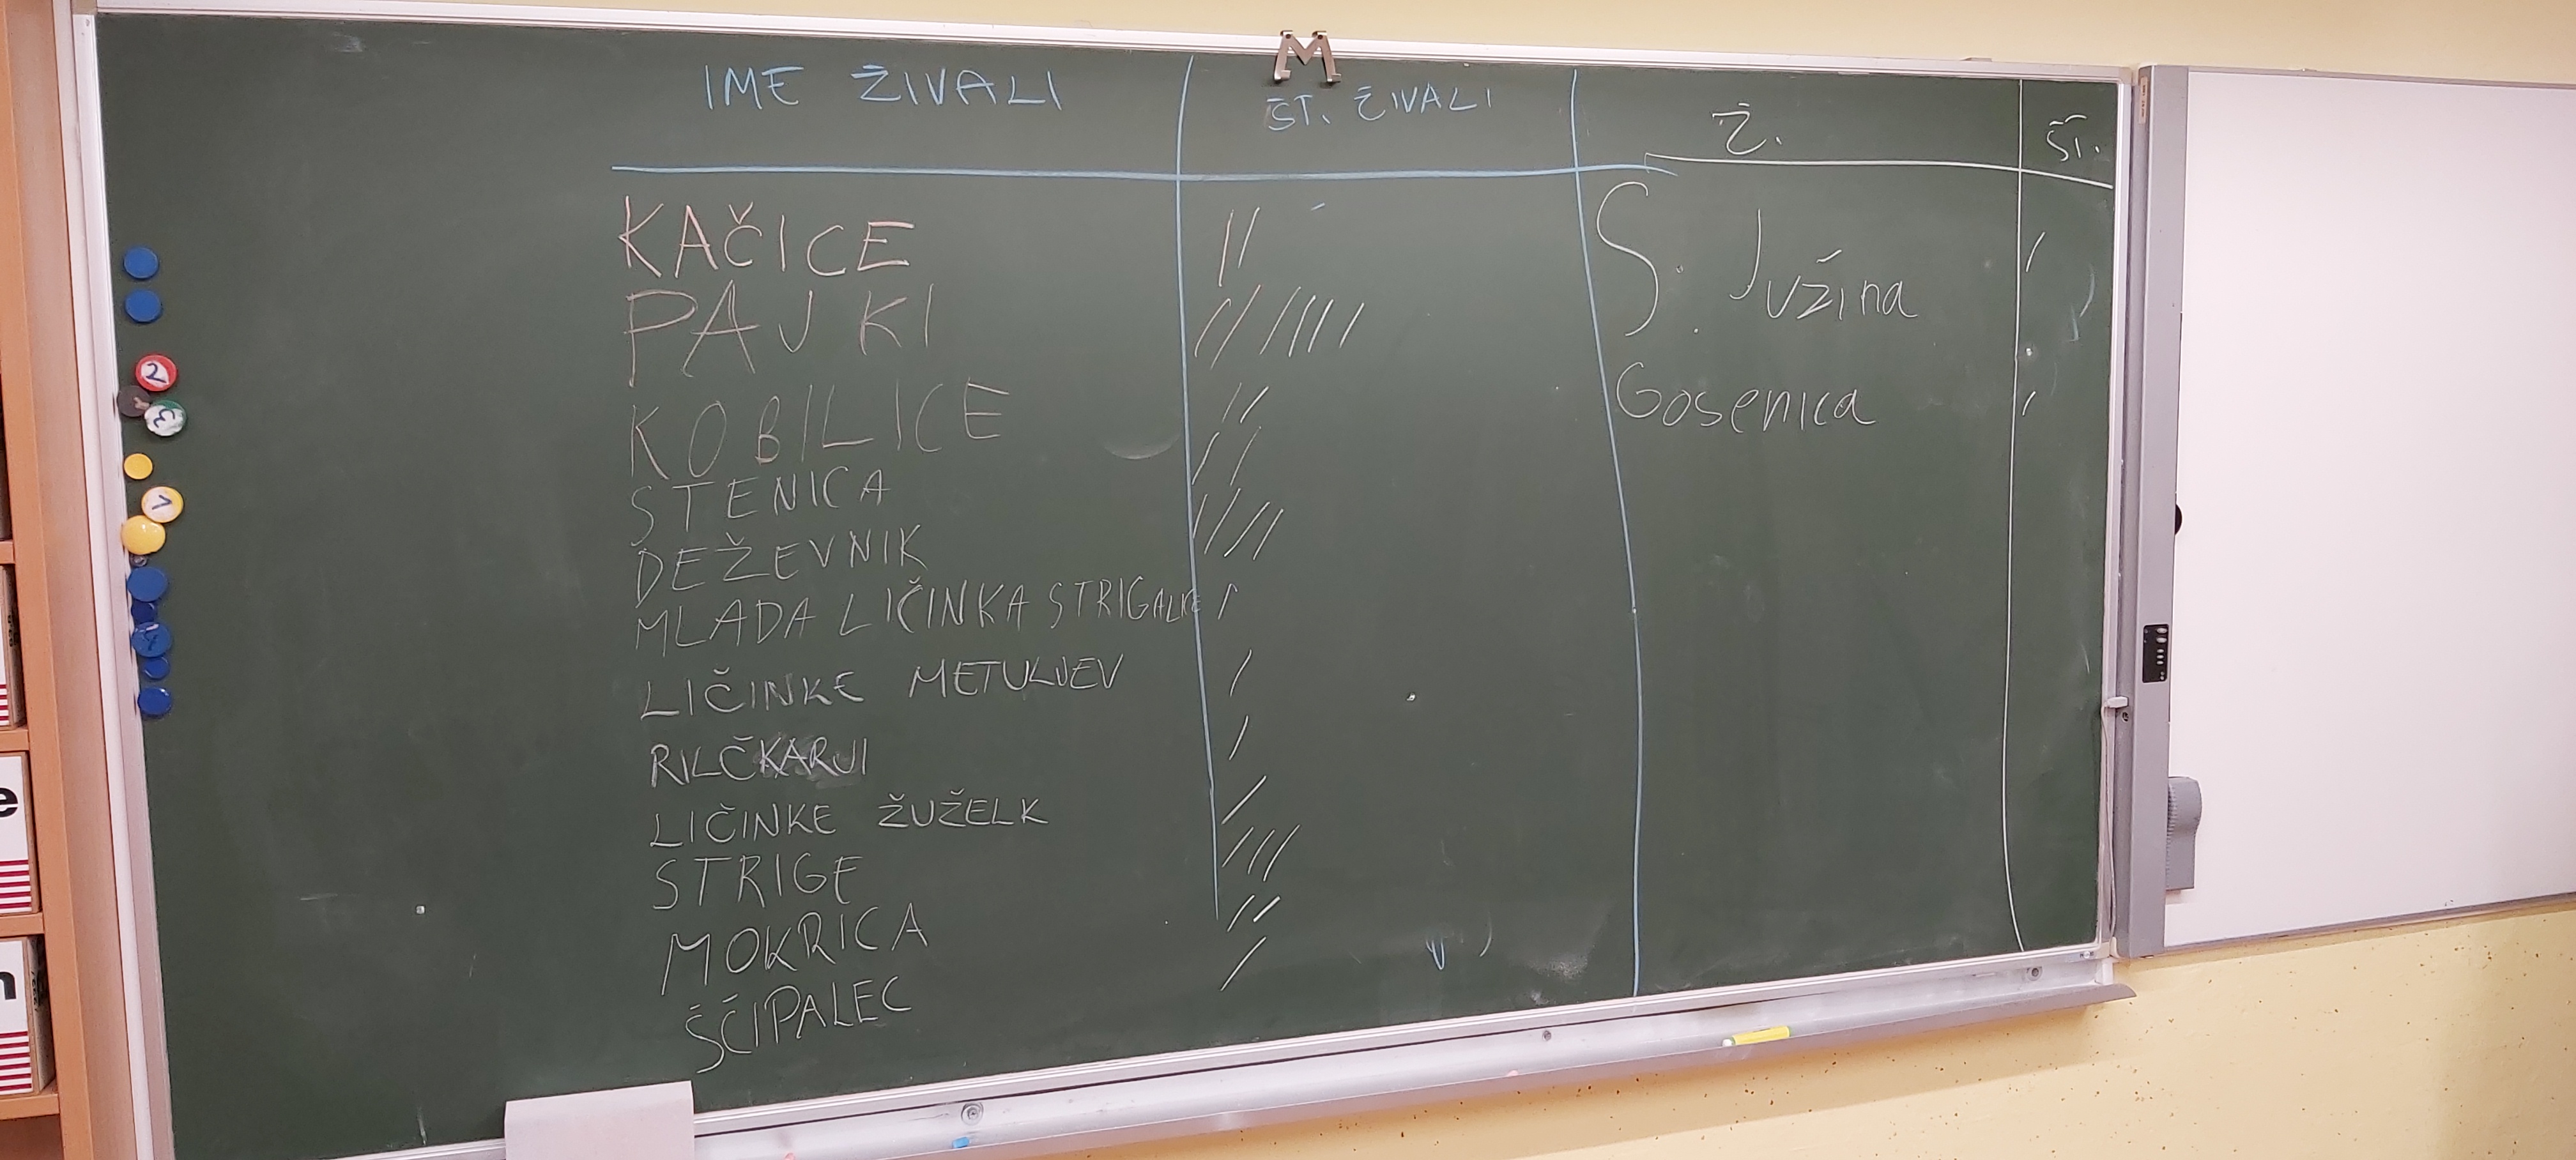 IME ŽIVALI ŠT. ŽIVALI Ž. ŠT.
KAČICE || S. Južina /
PAJKI // ////
KOBILICE // Gosenica /
STENICA //
DEŽEVNIK ////
MLADA LIČINKA STRIGALICE /
LIČINKE METULJEV /
RILČKARJI /
LIČINKE ŽUŽELK /
STRIGE ///
MOKRICA //
ŠČIPALEC /
M
2
3
1
e
n